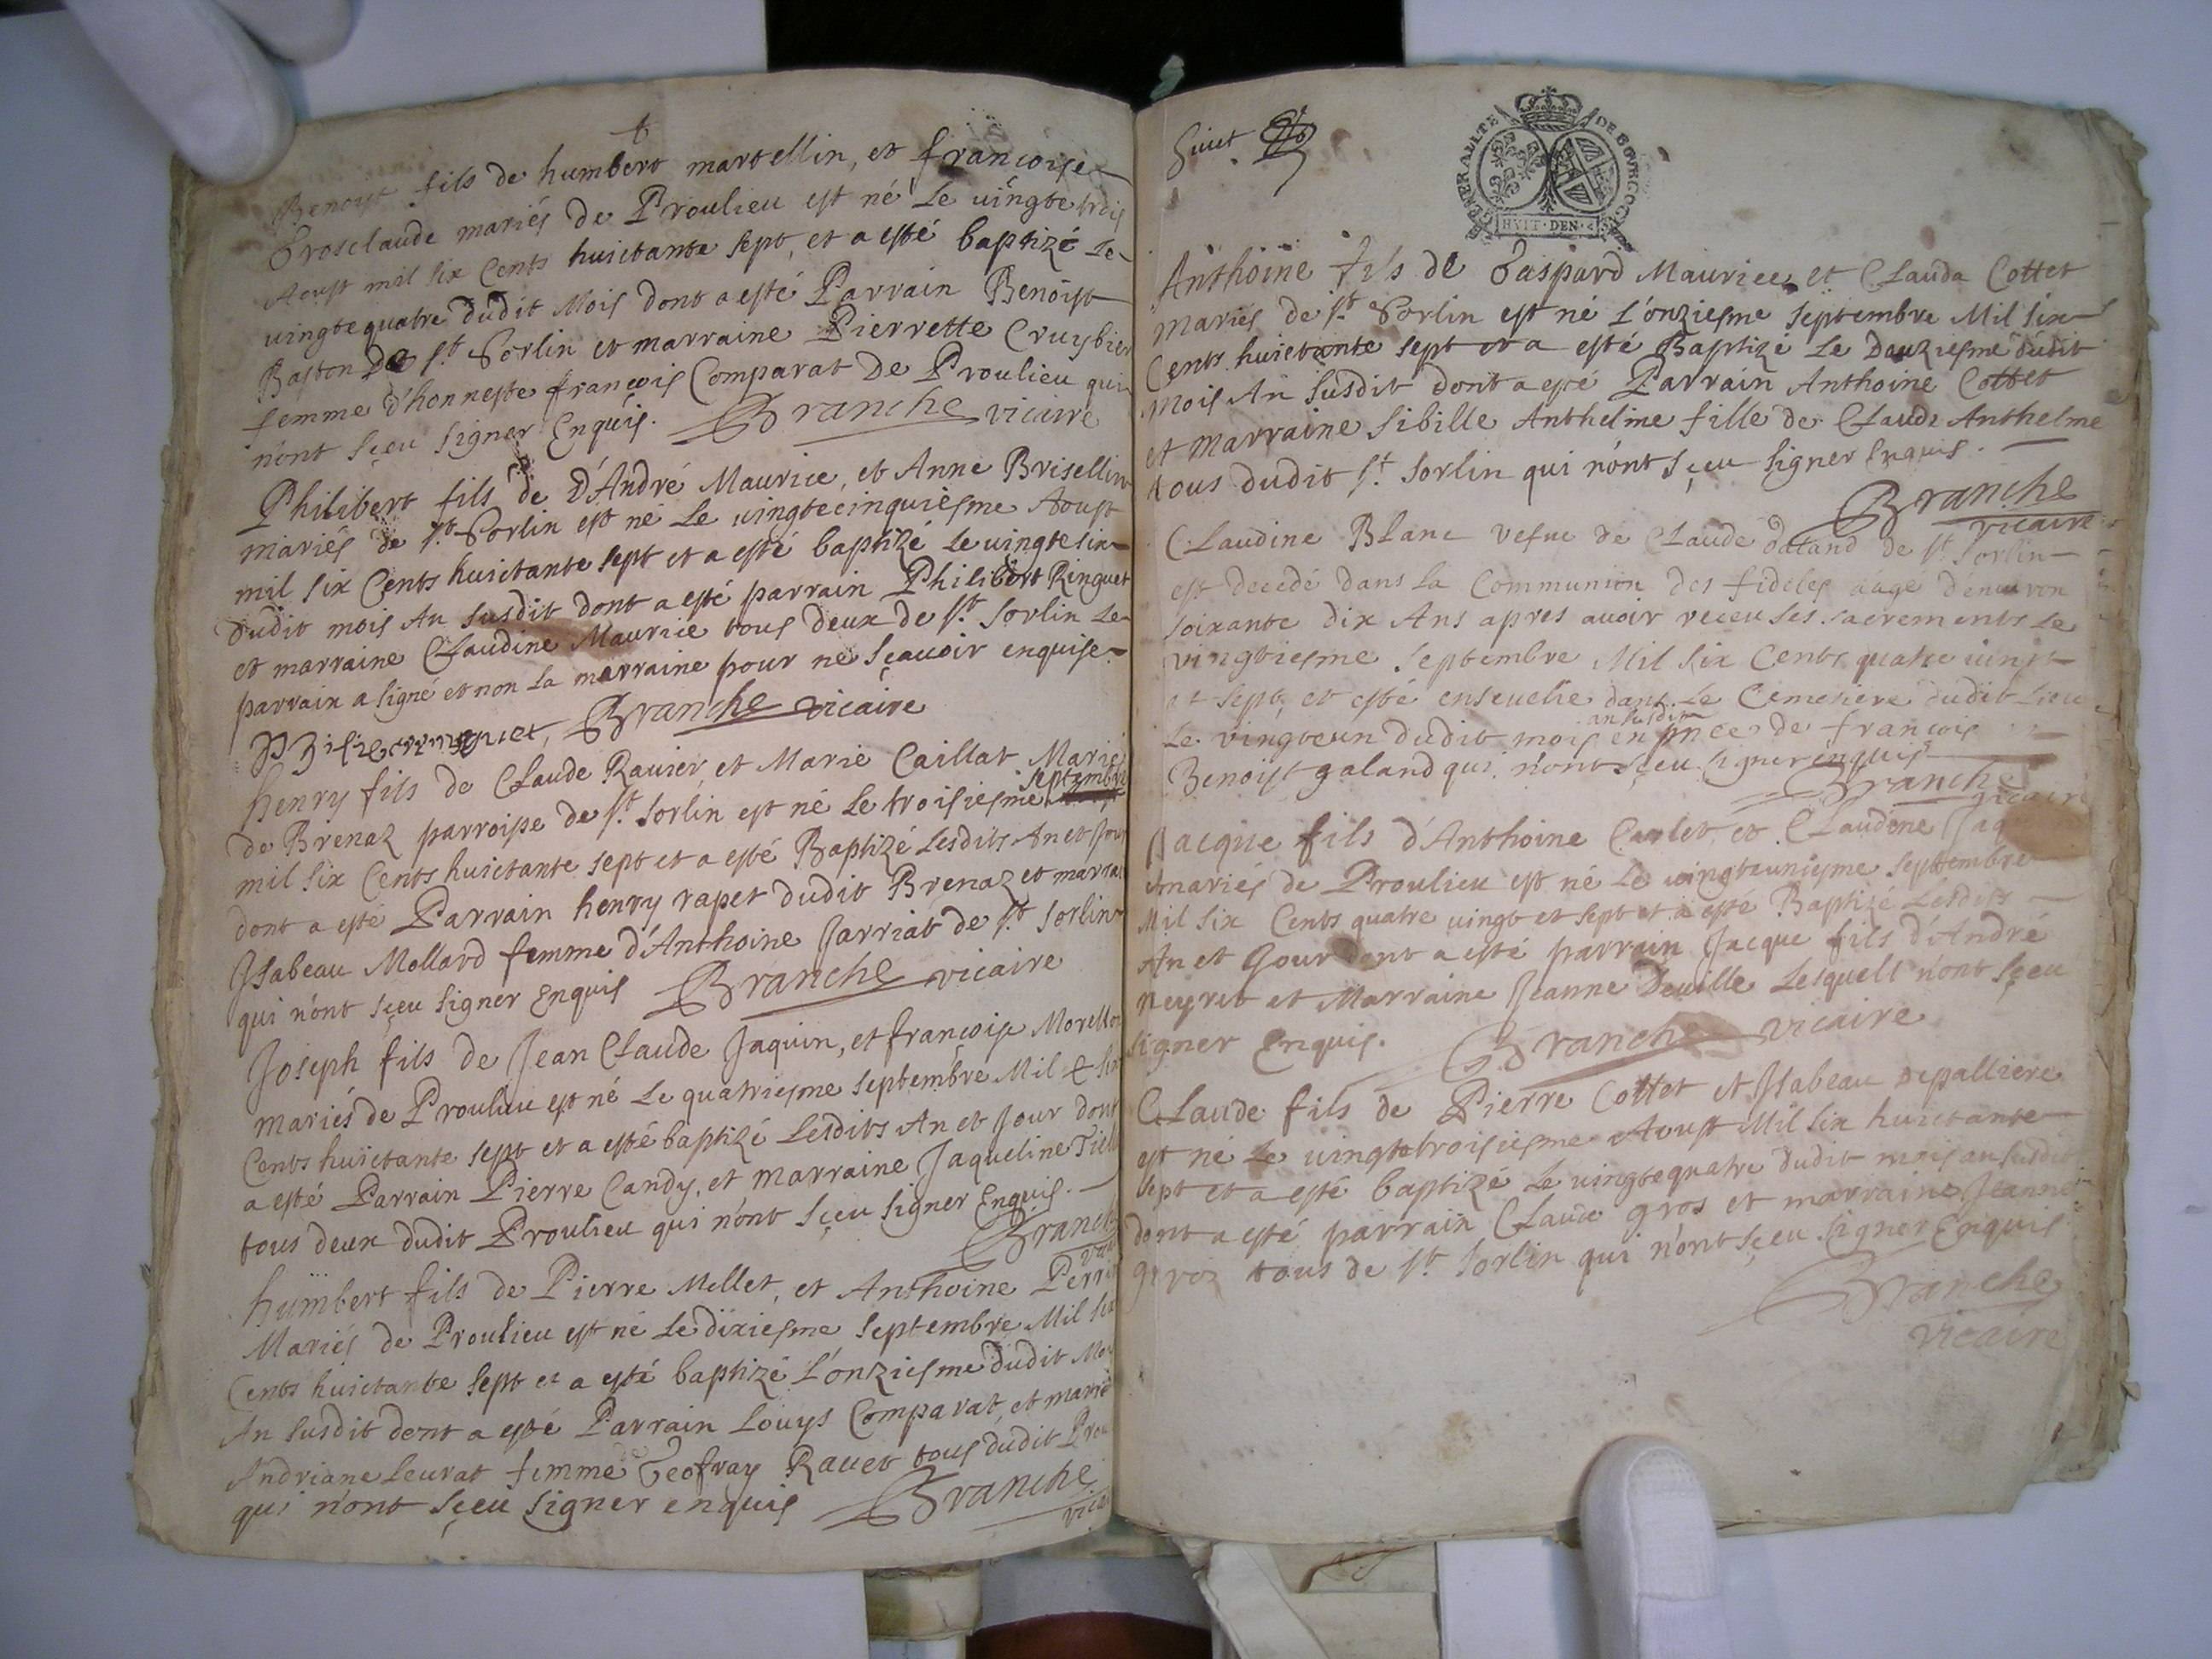 Benoist fils de humbert martellin, et francoise
Grosclaude mariés de Proulieu est né Le uingte trois
Aoust mil six Cents huictante sept, et a esté baptizé Le
uingtequatre dudit Mois dont a esté Parrain Benoist
Baston De st. Sorlin et marraine Pierrette Cruybier
femme d'honneste francois Comparat De Proulieu qui
n'ont sçeu signer Enquis. Branche vicaire
Philibert fils de D'André Maurice, et Anne Brisellin
mariés de st. Sorlin est né Le uingtecinquiesme Aoust
mil six Cents huictante sept et a esté baptizé Le uingtesix
dudit mois An susdit dont a esté parrain Philibert Ringuet
et marraine Claudine Maurice tous deux de st. Sorlin Le
parrain a signé et non La marraine pour ne sçauoir enquise
Branche vicaire
henry fils de Claude Rauier, et Marie Caillat Mariés
septembre
de Brenaz parroisse de st. Sorlin est né Le troisiesme
mil six Cents huictante sept et a esté Baptizé Lesdits An et Jour
dont a esté Parrain henry rapet dudit Brenaz et marraine
Isabeau Mollard femme d'Anthoine Jarriat de st. Sorlin
qui n'ont sçeu signer Enquis Branche vicaire
Joseph fils de Jean Claude Jaquin, et francoise Morellon
mariés de Proulieu est né Le quatriesme septembre Mil & six
Cents huictante sept et a esté baptizé Lesdits An et Jour dont
a esté Parrain Pierre Candy, et marraine Jaqueline
tous deux dudit Proulieu qui n'ont sçeu signer Enquis.
Branche
vicaire
humbert fils de Pierre Mellet, et Anthoine
Mariés de Proulieu est né Le dixiesme septembre Mil six
Cents huictante sept et a esté baptizé L'onziesme dudit Mois
An susdit dont a esté Parrain Louys Comparat, et
Andriane Leurat femme de Geofray Rauet tous dudit
qui n'ont sçeu signer enquis Branche
vicaire
Suiet
GENERALITE DE BOURGOGNE
HVIT · DEN ·
Anthoine fils de Gaspard Maurice et Clauda Cottet
mariés de st. Sorlin est né L'onziesme septembre Mil six
Cents huictante sept et a esté Baptizé Le Douziesme dudit
mois An susdit dont a esté Parrain Anthoine Cottet
et marraine Sibille Anthelme fille de Claude Anthelme
tous dudit st. Sorlin qui n'ont sçeu signer Enquis.
Branche
vicaire
Claudine Blanc vefue de Claude Galand de st. Sorlin
est decedé dans La Communion des fideles aage d'enuiron
soixante dix Ans apres auoir receu ses sacrements Le
vingtiesme septembre Mil six Cents quatre uingt
et sept, et esté enseuelie dans Le Cemetiere dudit Lieu
an susdit
Le vingteun dudit mois en p̃nce de francois
Benoist galand qui n'ont sçeu signer enquis
Branche
vicaire
Jacque fils d'Anthoine Carlet, et Claudine
mariés de Proulieu est né Le uingteuniesme septembre
Mil six Cents quatre uingt et sept et a esté Baptizé Lesdits
An et Jour dont a esté parrain Jacque fils d'André
neyret et Marraine Jeanne Deuille Lesquels n'ont sçeu
signer Enquis. Branche vicaire
Claude fils de Pierre Cottet et Isabeau Depalliere
est né Le uingtetroisiesme Aoust Mil six huictante
sept et a esté baptizé Le uingtequatre dudit mois an susdit
dont a esté parrain Claude gros et marraine Jeanne
tous de st. Sorlin qui n'ont sçeu signer Enquis
Branche
vicaire